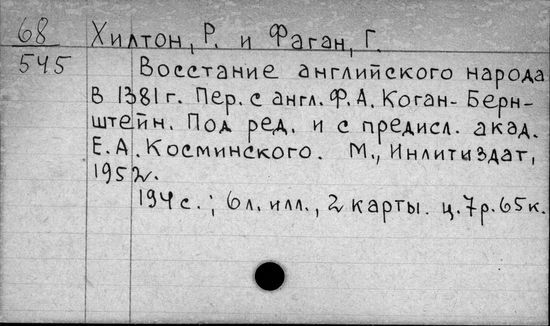 68 Хилтон, Р. и Фаган, Г.
545 Восстание английского народа
в 1381 г. Пер. с англ. Ф. А. Коган-Берн-
штейн. Под ред. и с предисл. акад.
Е. А. Косминского. М., Инлитиздат,
1952.
194 с.; 6 л. илл., 2 карты. ц. 7 р. 65 к.